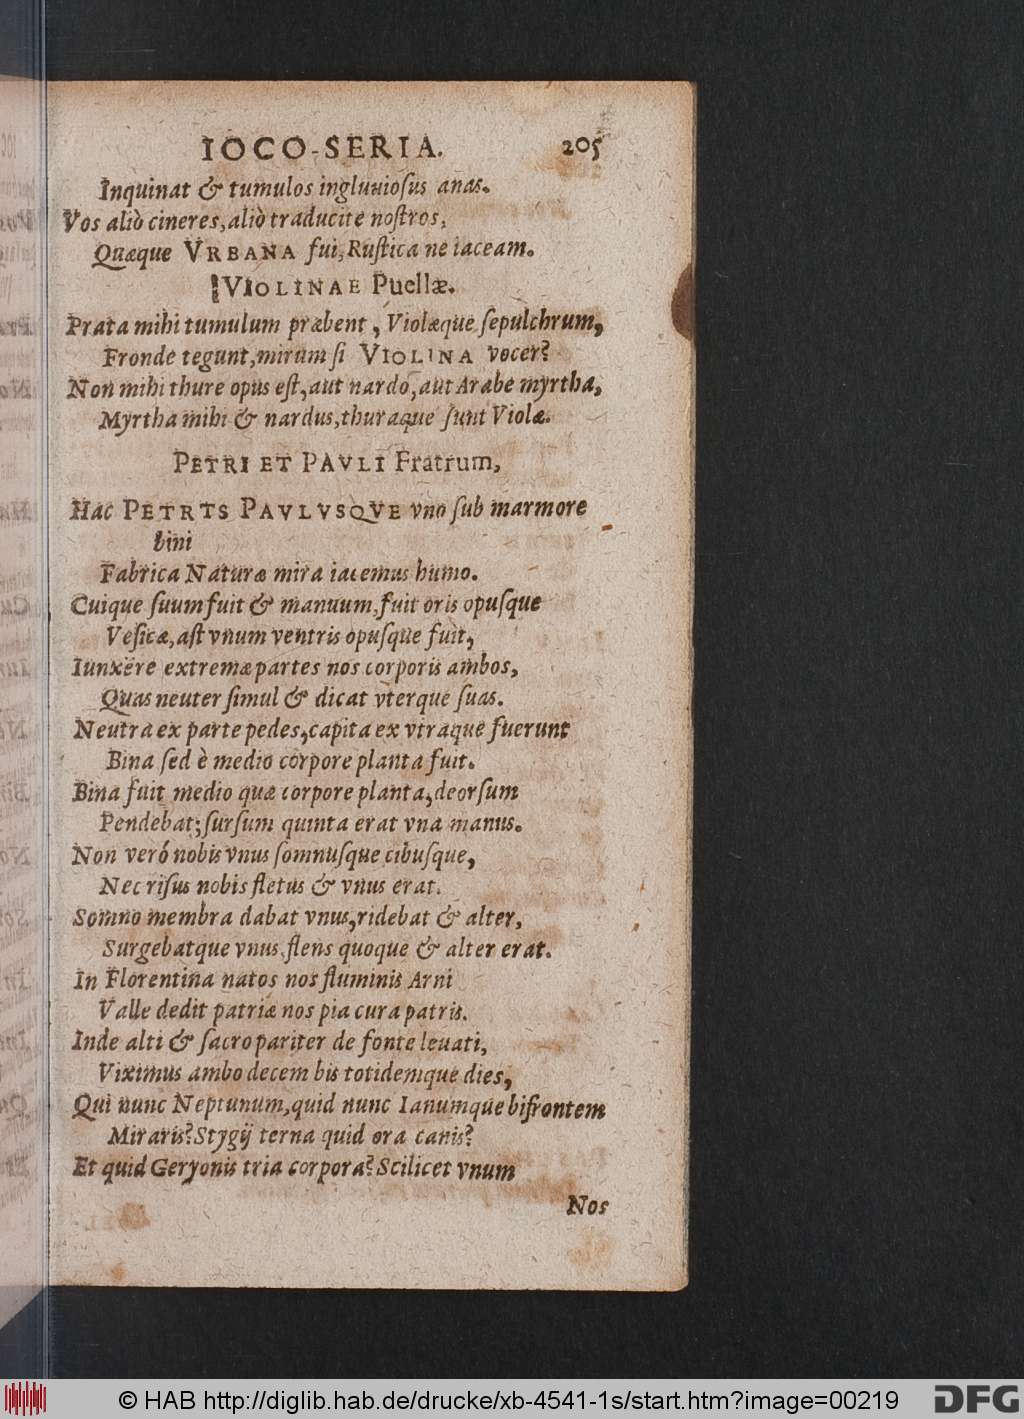 IOCO-SERIA. 205
Inquinat & tumulos ingluuioſus anas.
Vos aliò cineres, aliò traducite noſtros,
Quæque VRBANA fui, Ruſtica ne iaceam.
VIOLINAE Puellæ.
Prata mihi tumulum præbent, Violæque ſepulchrum,
Fronde tegunt, mirum ſi VIOLINA vocer?
Non mihi thure opus eſt, aut nardo, aut Arabe myrtha,
Myrtha mihi & nardus, thuraque ſunt Violæ.
PETRI ET PAVLI Fratrum,
Hac PETRTS PAVLVSQVE vno ſub marmore
bini
Fabrica Naturæ mira iacemus humo.
Cuique ſuum fuit & manuum, fuit oris opuſque
Veſicæ, aſt vnum ventris opuſque fuit,
Iunxêre extremæ partes nos corporis ambos,
Quas neuter ſimul & dicat vterque ſuas.
Neutra ex parte pedes, capita ex vtraque fuerunt
Bina ſed è medio corpore planta fuit.
Bina fuit medio quæ corpore planta, deorſum
Pendebat; ſurſum quinta erat vna manus.
Non veró nobis vnus ſomnuſque cibuſque,
Nec riſus nobis fletus & vnus erat.
Somno membra dabat vnus, ridebat & alter,
Surgebatque vnus, flens quoque & alter erat.
In Florentina natos nos fluminis Arni
Valle dedit patriæ nos pia cura patris.
Inde alti & ſacro pariter de fonte leuati,
Viximus ambo decem bis totidemque dies,
Qui nunc Neptunum, quid nunc Ianumque bifrontem
Miraris? Stygij terna quid ora canis?
Et quid Geryonis tria corpora? Scilicet vnum
Nos
© HAB http://diglib.hab.de/drucke/xb-4541-1s/start.htm?image=00219 DFG